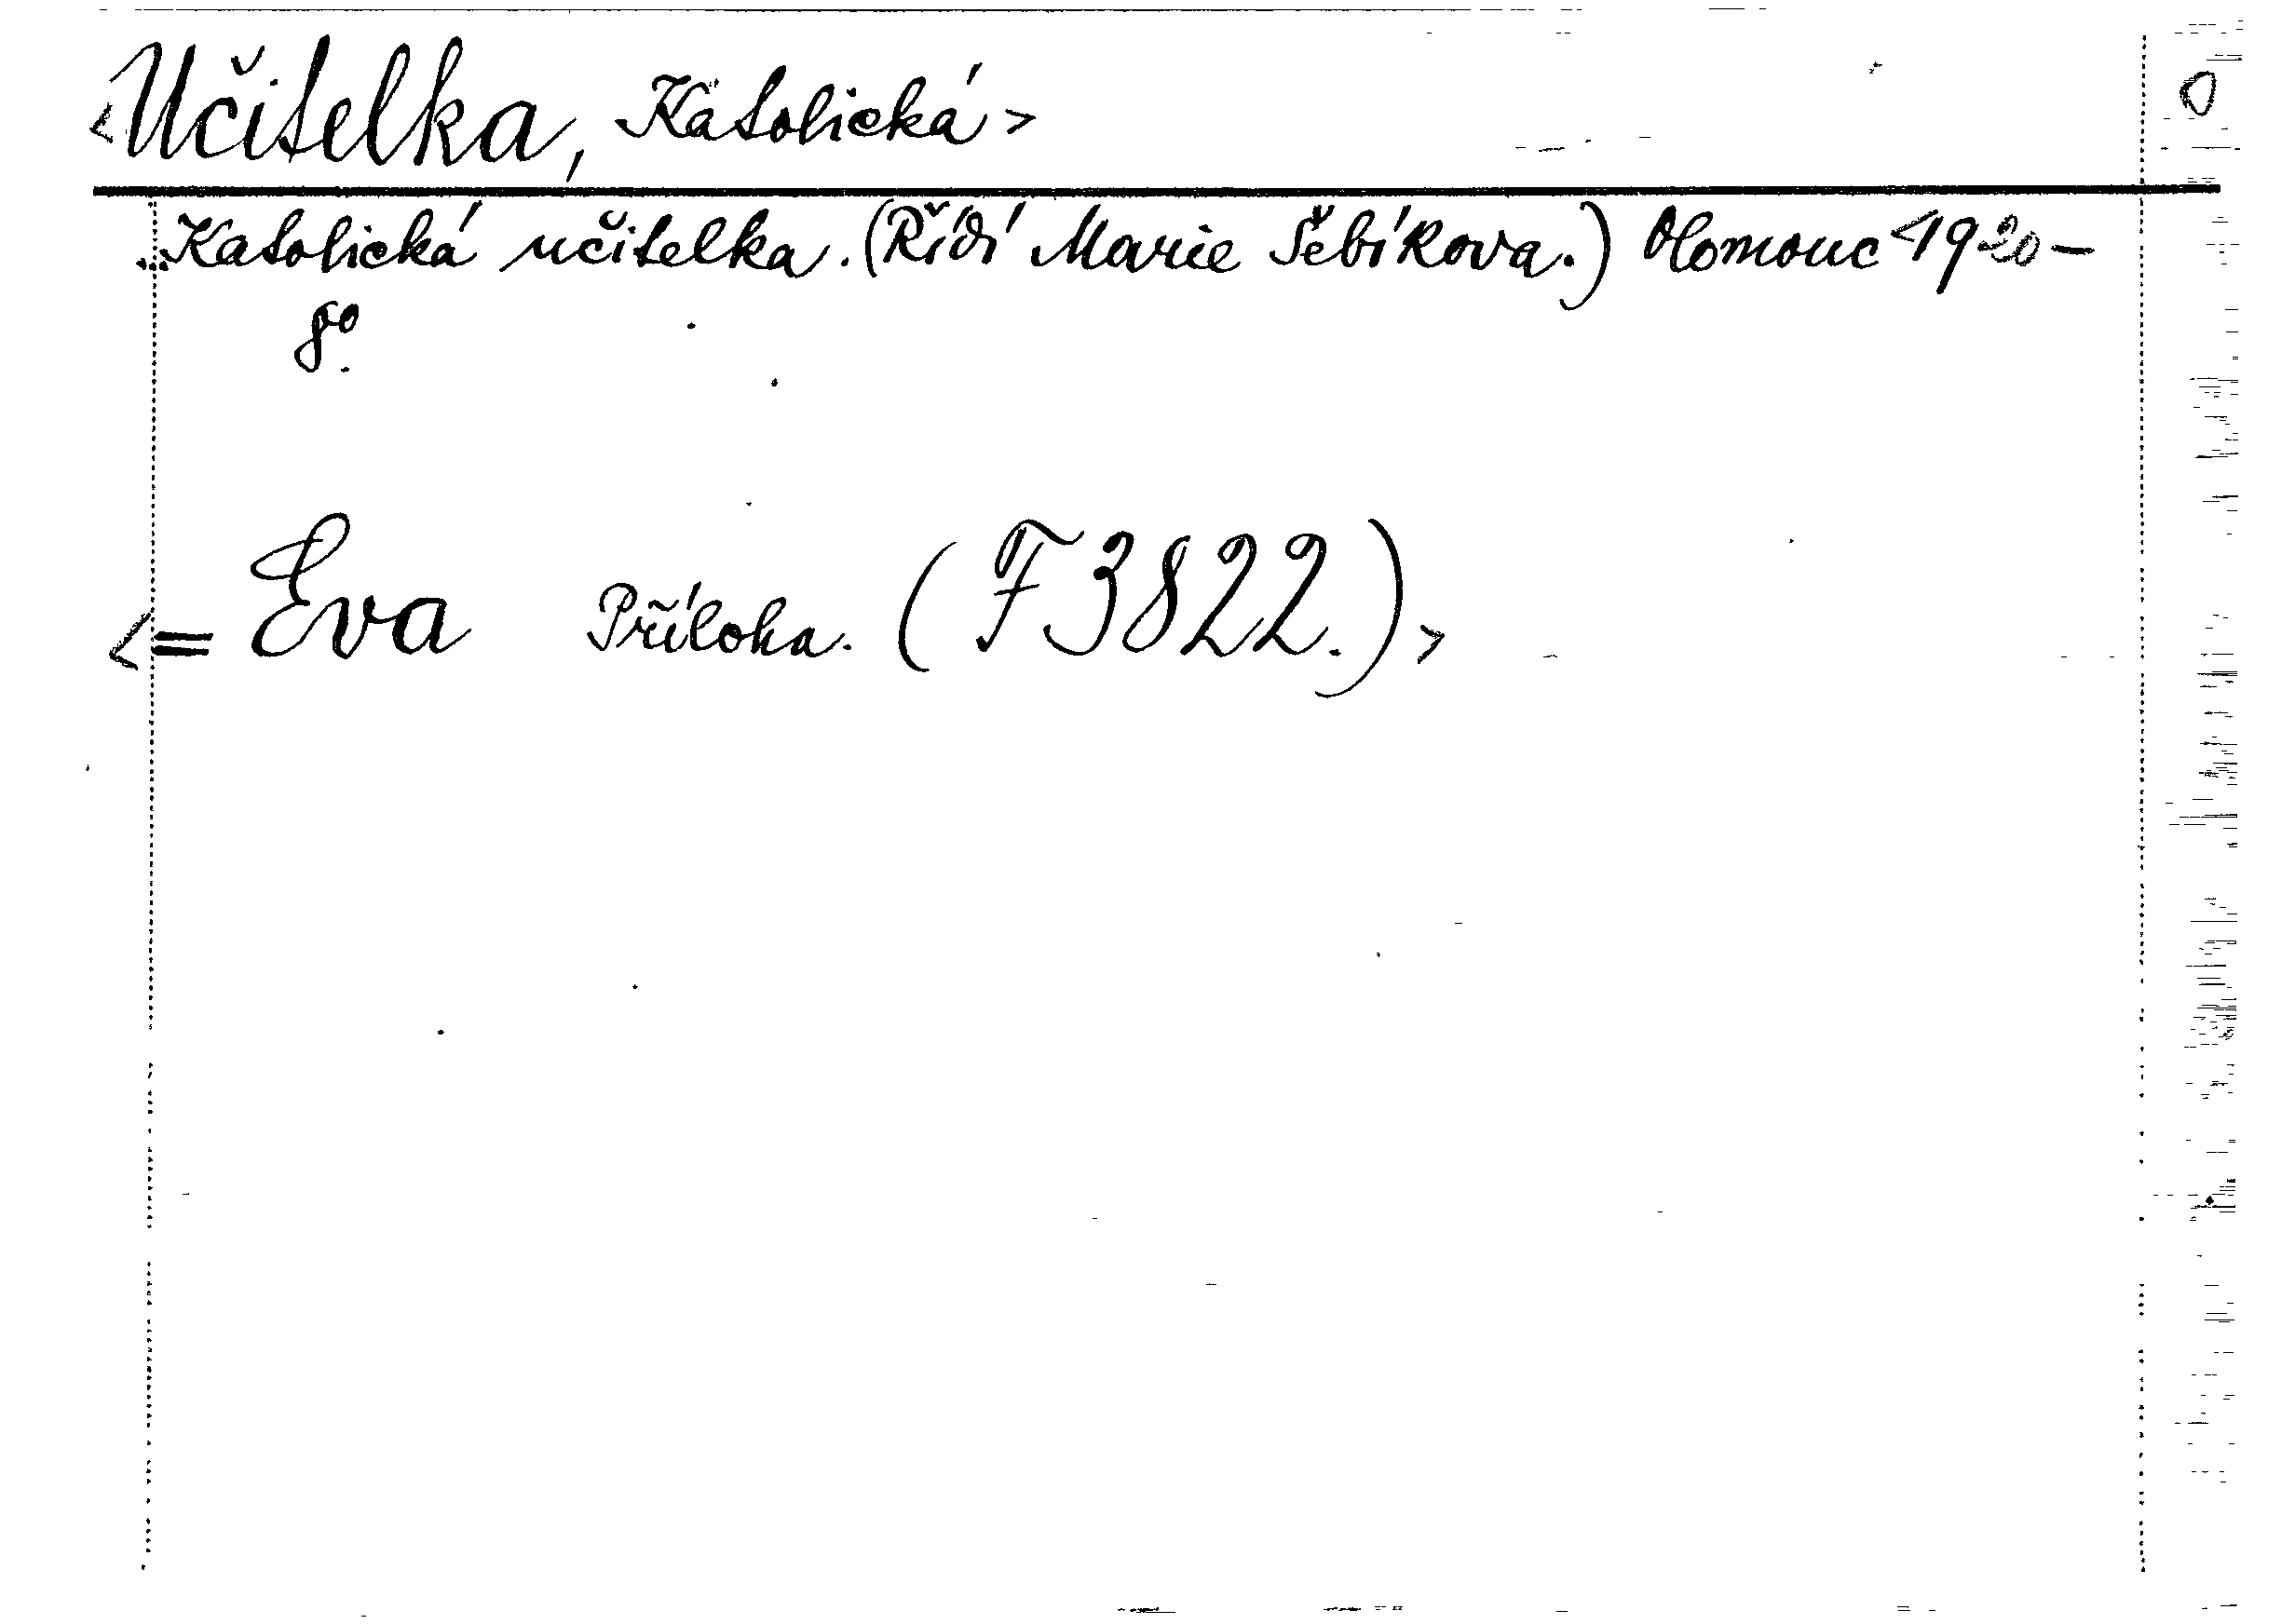 <Učitelka, Katolická> 0
Katolická učitelka. (Řídí Marie Šebíkova.) Olomouc <1920–
8o.
<= Eva Příloha. (F 3822.)>